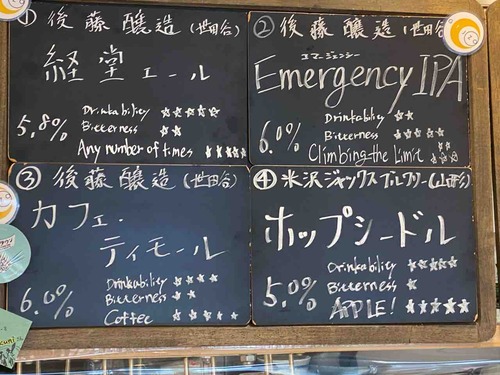 ① 後藤醸造 (世田谷)
経堂エール
5.8%
Drinkability ☆☆☆☆☆
Bitterness ☆☆
Any number of times ☆☆☆☆☆
② 後藤醸造 (世田谷)
エマージェンシー
Emergency IPA
6.0%
Drinkability ☆☆
Bitterness ☆☆☆☆
Climbing the Limit ☆☆☆☆☆
③ 後藤醸造 (世田谷)
カフェ・
ティモール
6.0%
Drinkability ☆☆☆☆
Bitterness ☆☆
Coffee ☆☆☆☆☆
④ 米沢ジャックスブルワリー (山形)
ホップシードル
5.0%
Drinkability ☆☆☆☆☆
Bitterness ☆
APPLE! ☆☆☆☆☆